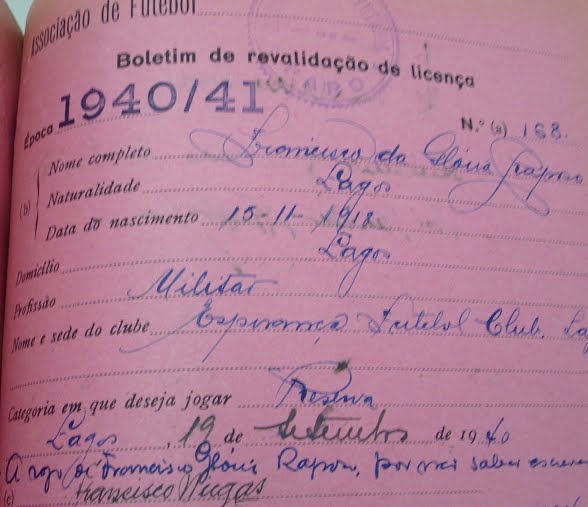 Associação de Futebol
Boletim de revalidação de licença
Época 1940/41
N.º (a) 168.
(b) Nome completo Francisco da Glória Raposo
Naturalidade Lagos
Data do nascimento 15-11-1918
Domicílio Lagos
Profissão Militar
Nome e sede do clube Esperança Futebol Club. La
Categoria em que deseja jogar Reserva
Lagos, 19 de Setembro de 1940
A rogo de Francisco Glória Raposo, por não saber escrever
(c) Francisco